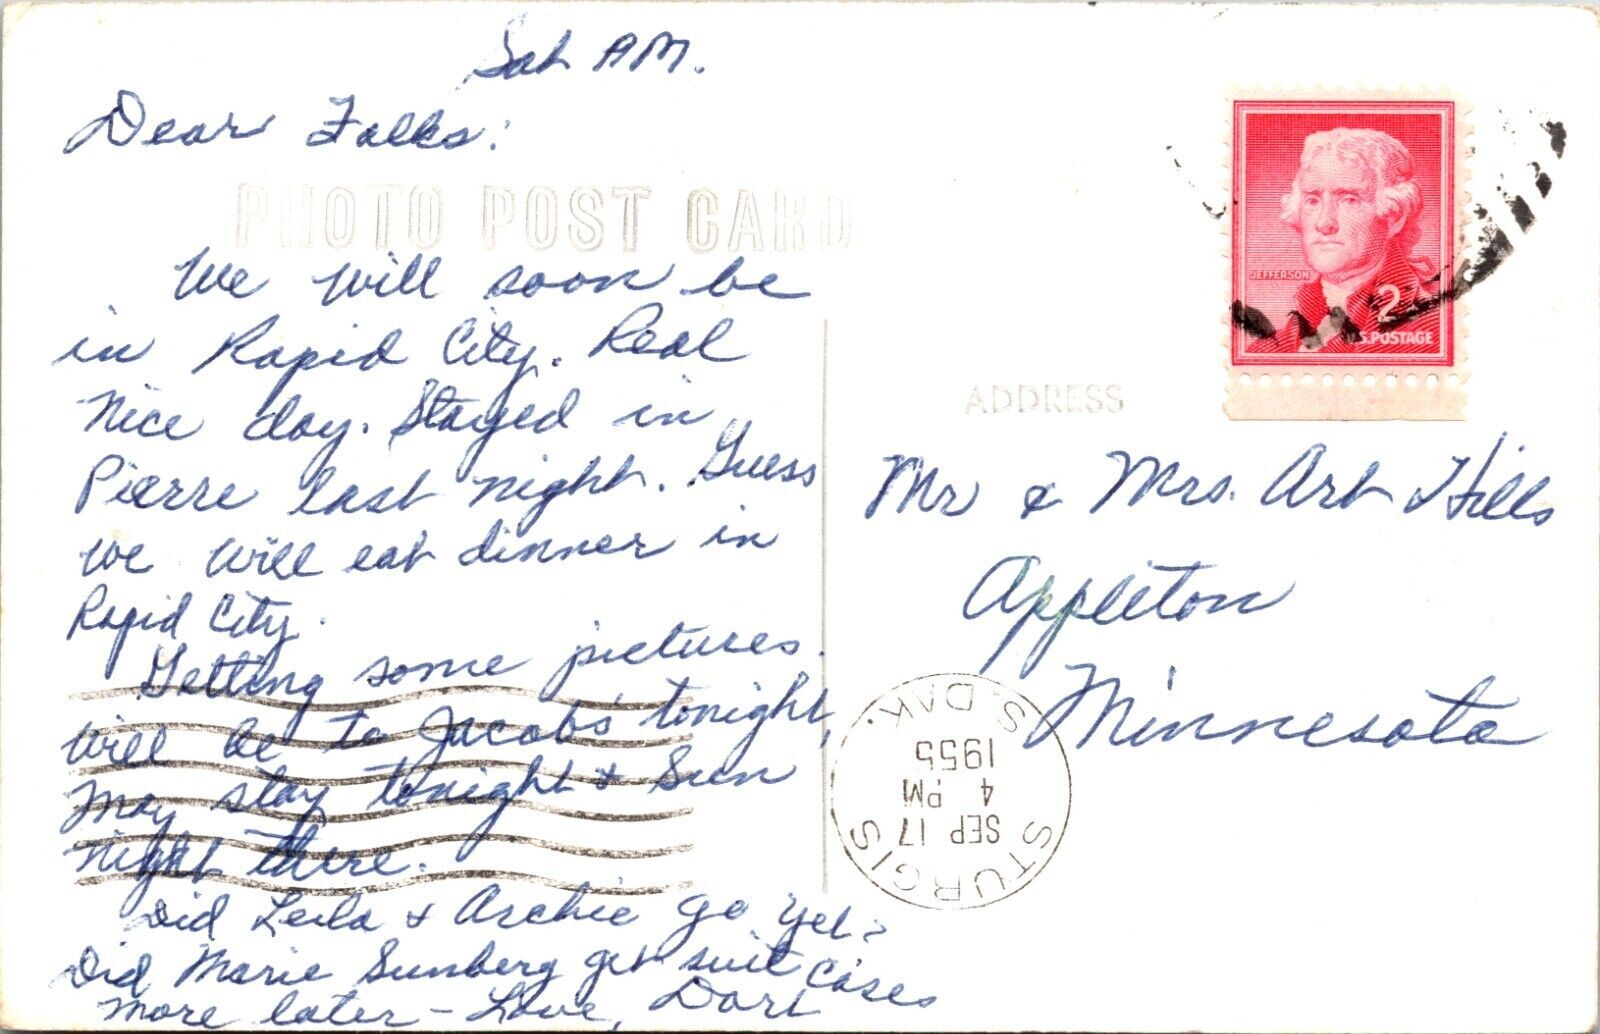 Sat AM.
Dear Folks:
PHOTO POST CARD
We will soon be
in Rapid City. Real
nice day. Stayed in
Pierre last night. Guess
we will eat dinner in
Rapid City.
Getting some pictures.
Will be to Jacobs' tonight,
may stay tonight & Sun
night there.
Did Leila & Archie go yet?
Did Marie Sunberg get suit cases
more later - Love,
JEFFERSON
2
U.S. POSTAGE
ADDRESS
Mr & Mrs. Art Hills
Appleton
Minnesota
STURGIS
SEP 17
4 PM
1955
S. DAK.